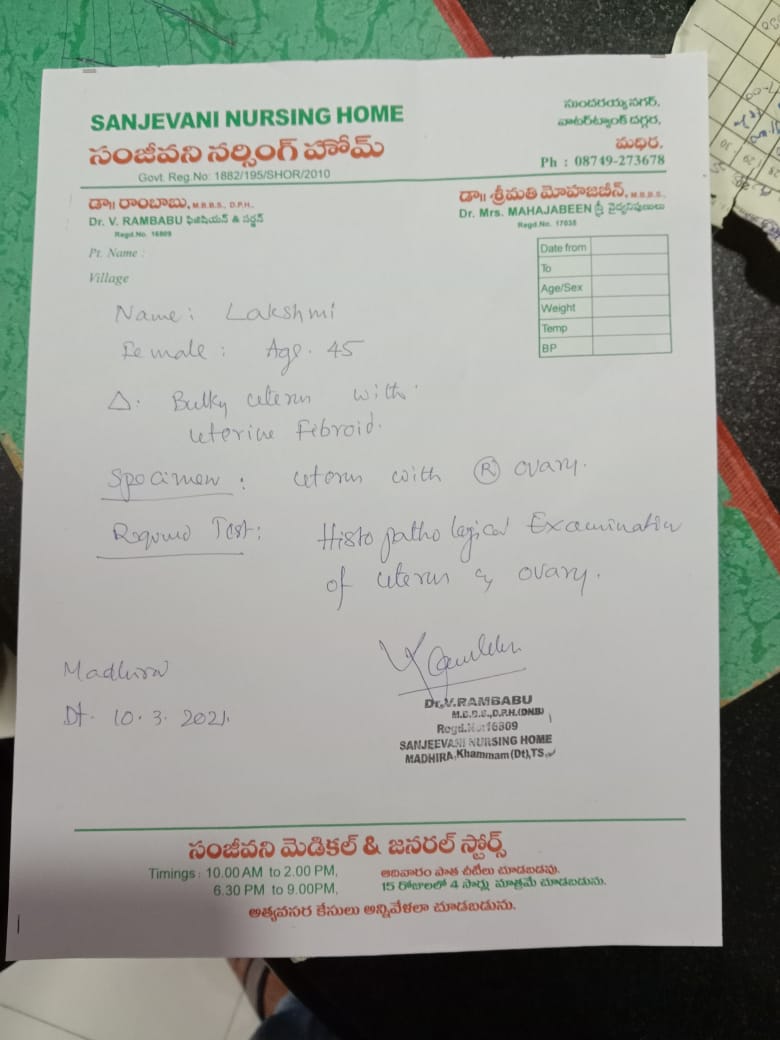 SANJEVANI NURSING HOME
సంజీవని నర్సింగ్ హోమ్
Govt. Reg.No: 1882/195/SHOR/2010
సుందరయ్య నగర్,
వాటర్‌ట్యాంక్ దగ్గర,
మధిర.
Ph : 08749-273678
డా॥ రాంబాబు, M.B.B.S., D.P.H.,
Dr. V. RAMBABU ఫిజిషియన్ & సర్జన్
Regd.No. 16809
డా॥ శ్రీమతి మోహజబీన్, M.B.B.S.,
Dr. Mrs. MAHAJABEEN స్త్రీ వైద్యనిపుణులు
Regd.No. 17035
Pt. Name :
Village
Date from
To
Age/Sex
Weight
Temp
BP
Name: Lakshmi
Female: Age. 45
Δ. Bulky uterus with
uterine Febroid.
Specimen: uterus with Ⓡ ovary.
Required Test: Histo pathological Examination
of uterus & ovary.
Madhira
Dt. 10.3.2021.
Dr.V.RAMBABU
M.B.B.S.,D.P.H.(DNB)
Regd.No:16809
SANJEEVANI NURSING HOME
MADHIRA,Khammam(Dt),TS
సంజీవని మెడికల్ & జనరల్ స్టోర్స్
Timings : 10.00 AM to 2.00 PM,
6.30 PM to 9.00PM,
ఆదివారం పాత చీటీలు చూడబడవు.
15 రోజులలో 4 సార్లు మాత్రమే చూడబడును.
అత్యవసర కేసులు అన్నివేళలా చూడబడును.